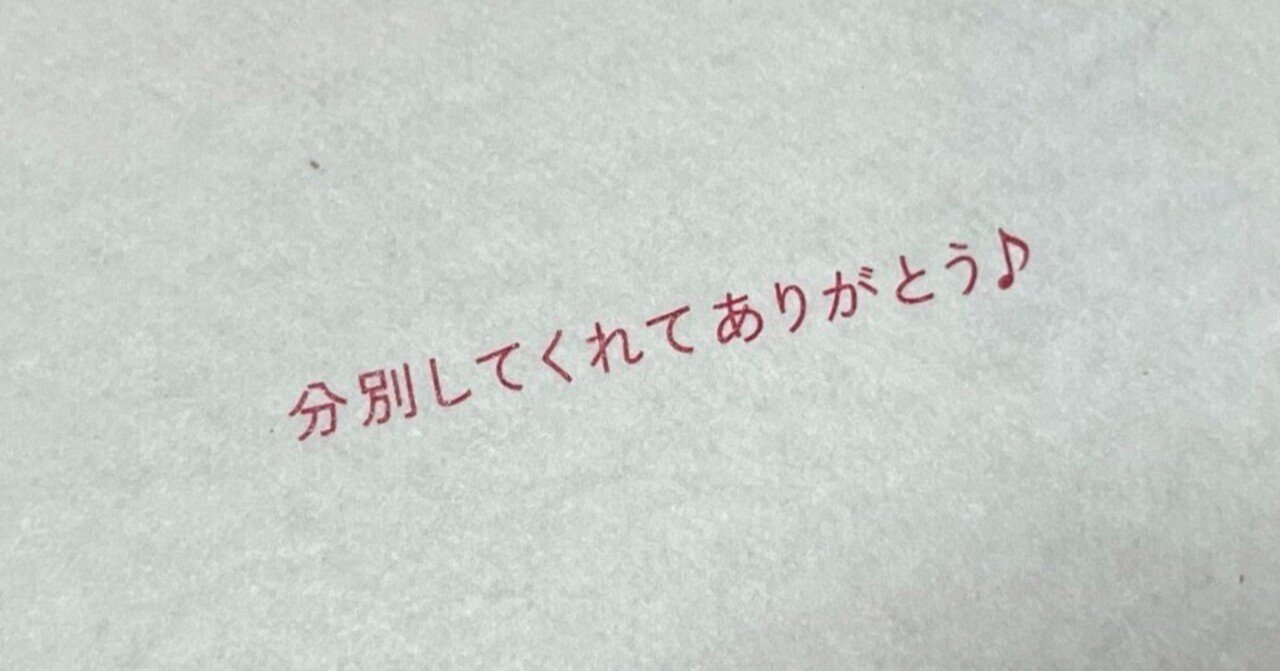 分別してくれてありがとう♪